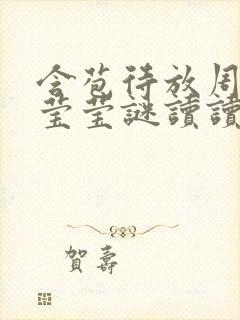 含苞待放周
莹莹謎讀讀
賀壽